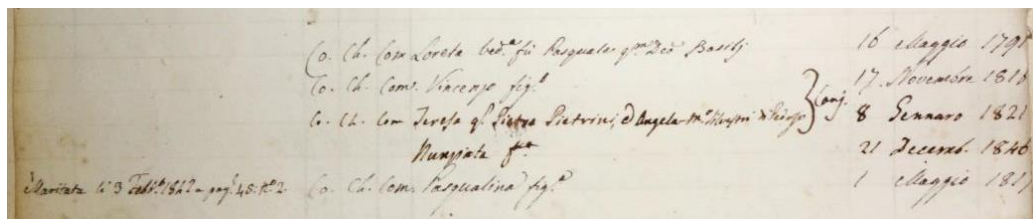 Co. Ch. Com Loreta Ved.a fù Pasquale q.m Basilj 16 Maggio 179
Co. Ch. Com. Vincenzo fig.o 17. Novembre 1818
Co. Ch. Com Teresa q. Pietro Pietrini, e Angela M.a } Conj. 8 Gennaro 1821
Nunziata 21 Decemb. 1846
Maritata li 3 Febb. 1842 a pag. 48: N.o 2. Co. Ch. Com. Pasqualina fig.a 1 Maggio 181